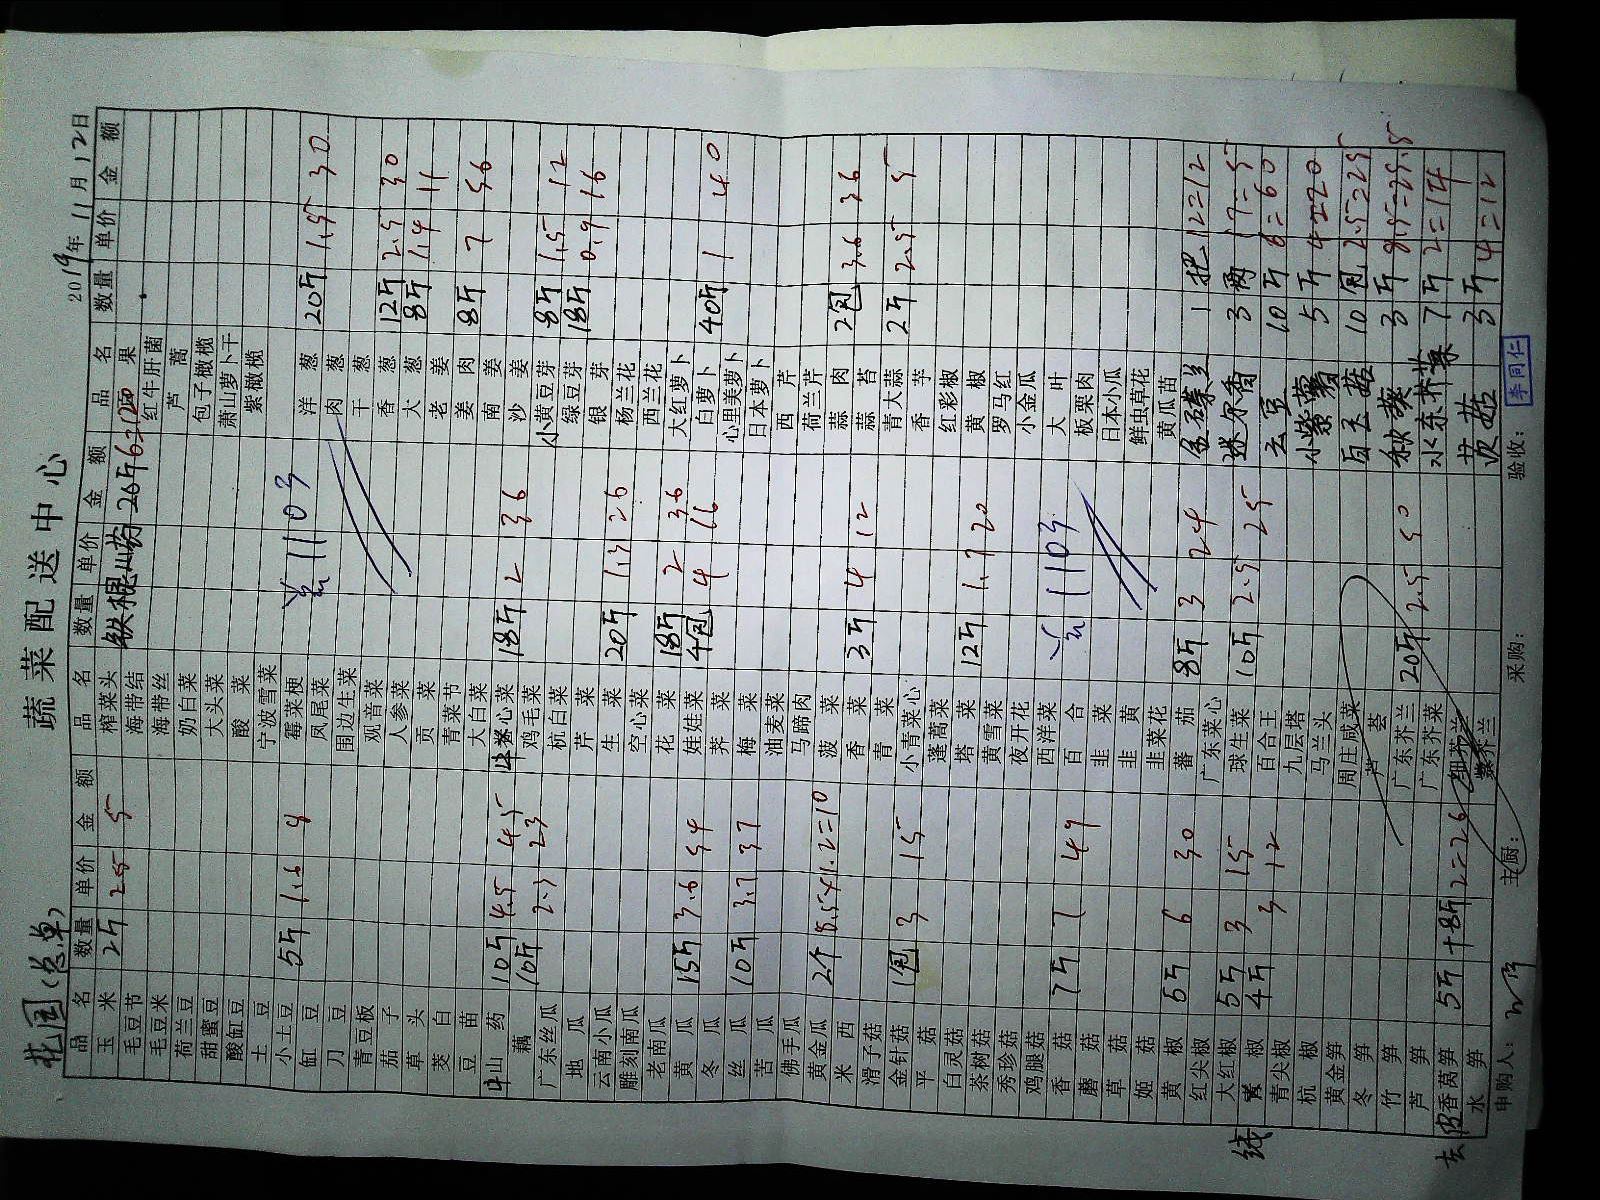 蔬菜配送中心
花园(总单)
2019年11月12日
品名 数量 单价 金额 品名 数量 单价 金额 品名 数量 单价 金额
玉米 2斤 2.5 5 榨菜头
果
毛豆节 海带结 铁棍山药 20斤 6=120 红牛肝菌
毛豆米 海带丝 芦蒿
荷兰豆 奶白菜 包子橄榄
甜蜜豆 大头菜 萧山萝卜干
酸缸豆 酸菜 紫橄榄
土豆 宁波雪菜
小土豆 5斤 1.6 8 霉菜梗 1103 洋葱 20斤 1.5 30
缸豆 凤尾菜 肉葱
刀豆 围边生菜 干葱
青豆板 观音菜 香葱 12斤 2.5 30
茄子 人参菜 大葱 8斤 1.4 11
草头 贡菜 老姜
茭白 青菜节 姜肉 8斤 7 56
豆苗 大白菜 南姜
山药 10斤 4.5 45 卷心菜 18斤 2 36 沙姜
藕 10斤 2.3 23 鸡毛菜 小黄豆芽 8斤 1.5 12
广东丝瓜 杭白菜 绿豆芽 18斤 0.9 16
地瓜 芹菜 银芽
云南小瓜 生菜 20斤 1.3 26 杨兰花
雕刻南瓜 空心菜 西兰花
老南瓜 花菜 18斤 2 36 大红萝卜
黄瓜 15斤 3.6 54 娃娃菜 4包 4 16 白萝卜 40斤 1 40
冬瓜 荠菜 心里美萝卜
丝瓜 10斤 3.7 37 梅菜 日本萝卜
苦瓜 油麦菜 西芹
佛手瓜 马蹄肉 荷兰芹
黄金瓜 2个 8.5斤×1.2=10 菠菜 蒜肉 2包 3.6 36
米西 香菜 3斤 4 12 蒜苔
滑子菇 青菜 青大蒜 2斤 2.5 5
金针菇 1包 3 15 小青菜心 香芋
平菇 蓬蒿菜 红彩椒
白灵菇 塔菜 12斤 1.7 20 黄椒
茶树菇 黄雪菜 罗马红
秀珍菇 夜开花 小金瓜
鸡腿菇 西洋菜 大叶
香菇 7斤 7 49 百合 1103 板栗肉
蘑菇 韭菜 日本小瓜
草菇 韭黄 鲜虫草花
姬菇 韭菜花 黄瓜苗
黄椒 5斤 6 30 蕃茄 8斤 3 24 1把 12=12
红尖椒 广东菜心
大红椒 5斤 3 15 球生菜 10斤 2.5 25 迷尔香 3两
线椒 4斤 3 12 百合王 云豆 10斤 6=60
青尖椒 九层塔
杭椒 马兰头 小紫薯 5斤 4=20
黄金笋 周庄咸菜 白玉菇 10包 2.5=25
冬笋 芦荟
竹笋 广东芥兰 20斤 2.5 50 秋葵 3斤 9.5=28.5
芦笋 广东芥菜 水东芥菜 7斤 2=14
去皮香莴笋 5斤+8斤 2=26 细芥兰 茨菇 3斤 4=12
水笋 紫芥兰
申购人： 主厨： 采购： 验收： 李同仁